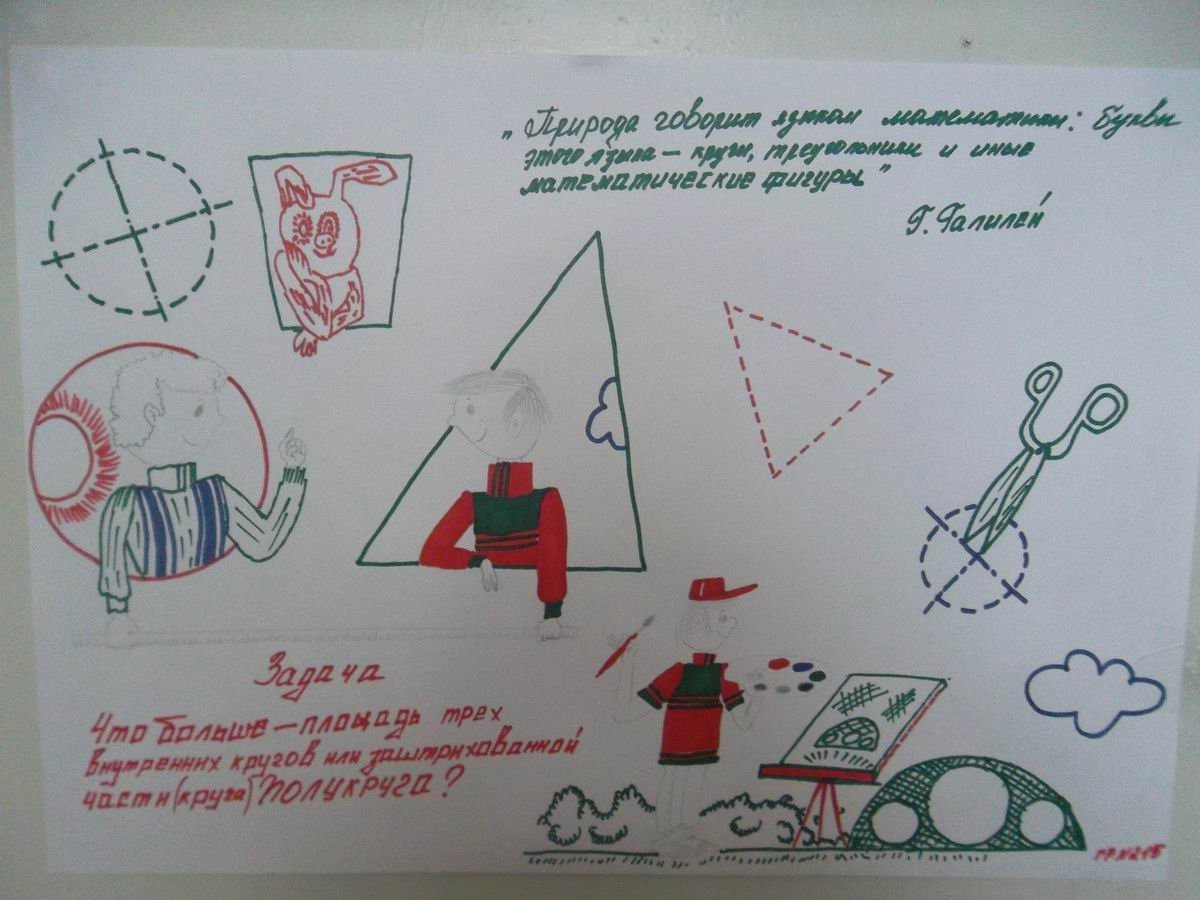 „Природа говорит языком математики: буквы
этого языка — круги, треугольники и иные
математические фигуры"
Г. Галилей
Задача
Что больше — площадь трех
внутренних кругов или заштрихованной
части (круга) полукруга?